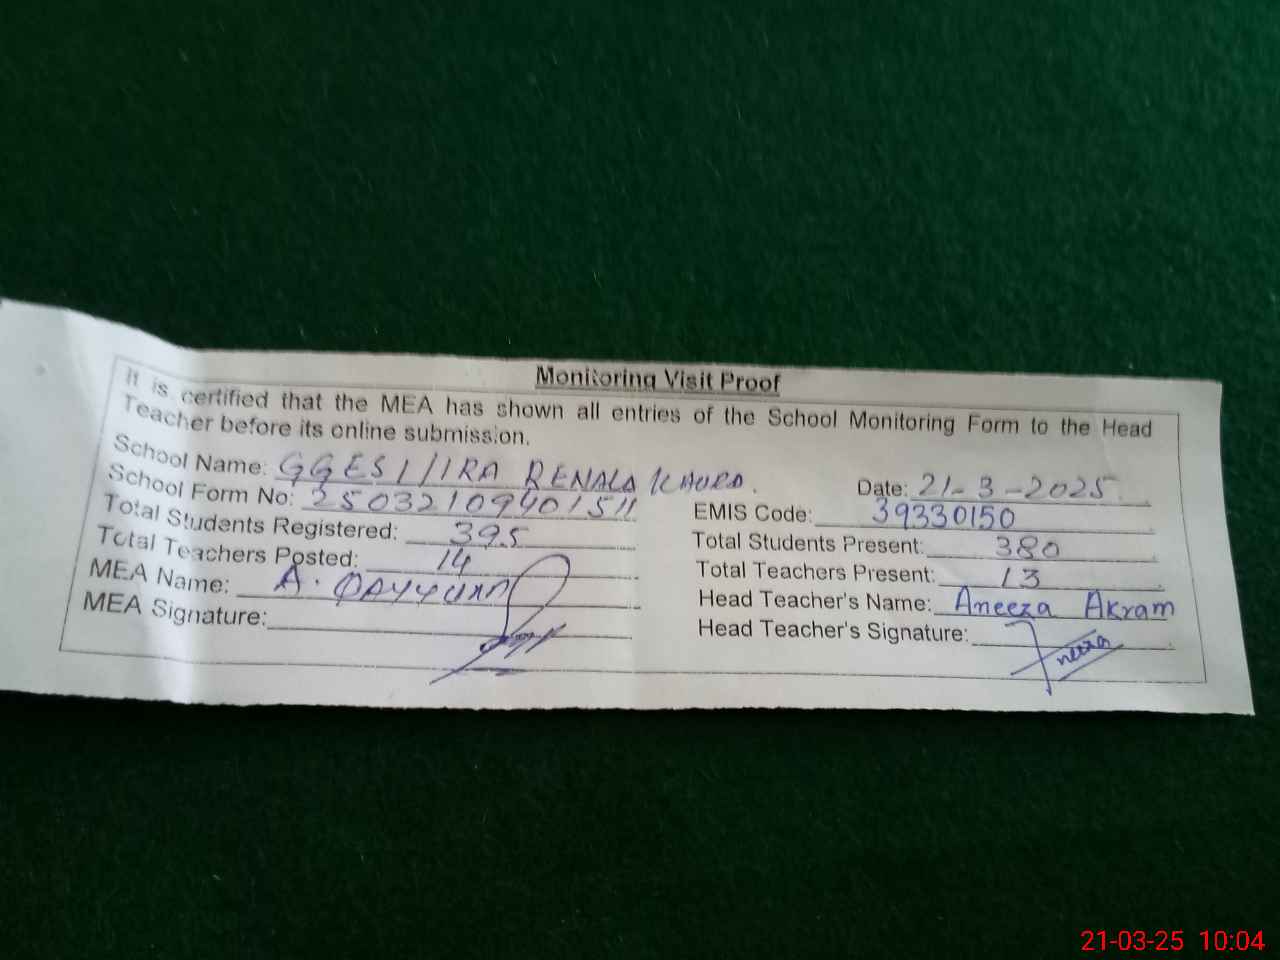 Monitoring Visit Proof
It is certified that the MEA has shown all entries of the School Monitoring Form to the Head
Teacher before its online submission.
School Name: GGES 1//1RA RENALA KHURD. Date: 21-3-2025
School Form No: 2503210940151 EMIS Code: 39330150
Total Students Registered: 395 Total Students Present: 380
Total Teachers Posted: 14 Total Teachers Present: 13
MEA Name: A. QAYYUM Head Teacher's Name: Aneeza Akram
MEA Signature: Head Teacher's Signature: Aneeza
21-03-25 10:04